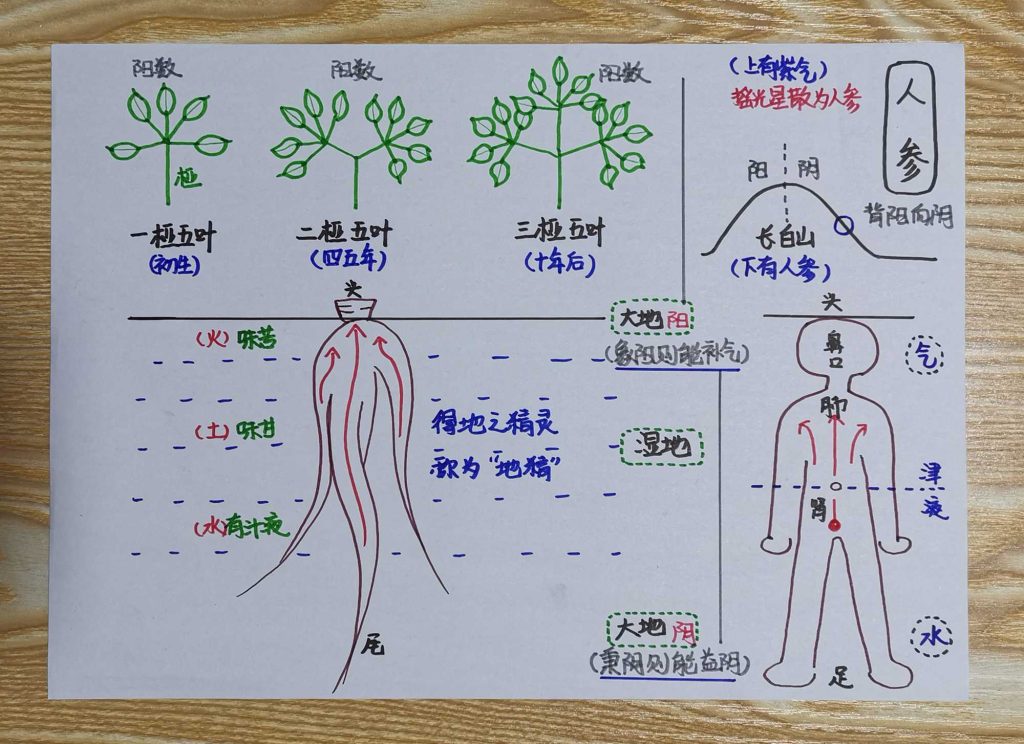 阳数
阳数
阳数
桠
一桠五叶
(初生)
二桠五叶
(四五年)
三桠五叶
(十年后)
(上有紫气)
摇光星散为人参
人参
阳
阴
长白山
背阳向阴
(下有人参)
头
(火)味苦
(土)味甘
(水)有汁液
得地之精灵
称为“地精”
尾
大地阳
(象阳则能补气)
湿地
大地阴
(秉阴则能益阴)
头
鼻
口
肺
肾
足
气
津
液
水